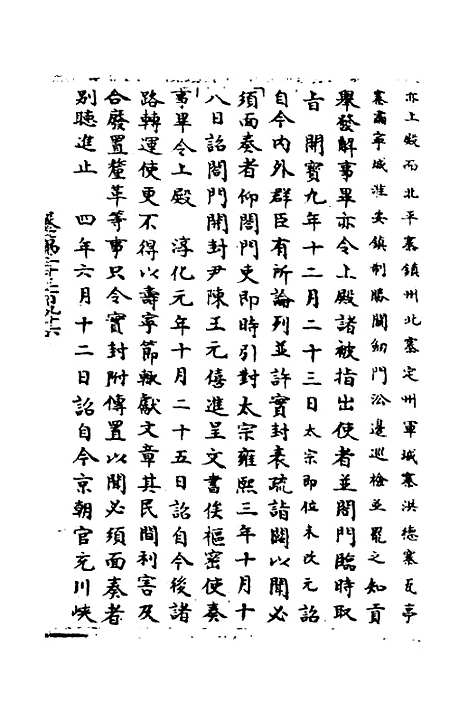 亦上殿而北平寨鎮州北寨定州軍城寨洪德寨瓦亭
寨高寧城淮安鎮制勝關劒門沿邊巡檢並罷之知貢
舉發解事畢亦令上殿諸被指出使者並閤門臨時取
旨　開寶九年十二月二十三日太宗即位未改元詔
自今内外群臣有所論列並許實封表疏詣闕以聞必
須面奏者仰閤門吏即時引對太宗雍熙三年十月十
八日詔閤門開封尹陳王元僖進呈文書俟樞密使奏
事畢令上殿　淳化元年十月二十五日詔自今後諸
路轉運使更不得以壽寧節輒獻文章其民間利害及
合廢置釐革等事只令實封附傳置以聞必須面奏者
别聽進止　四年六月十二日詔自今京朝官充川峽